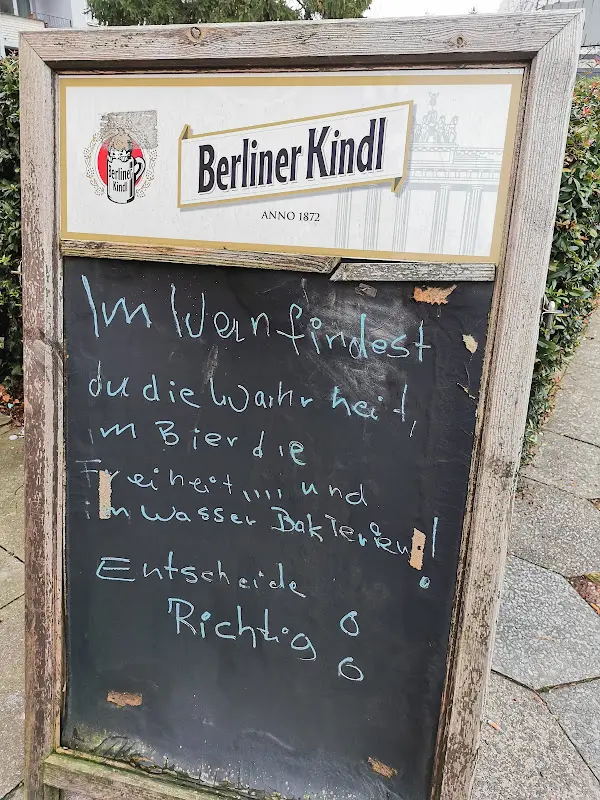 Berliner Kindl
Berliner Kindl
ANNO 1872
Im Wern findest
du die Wahrheit,
im Bier die
Freiheit,,,, und
im wasser Bakterien!
Entscheide
Richtig